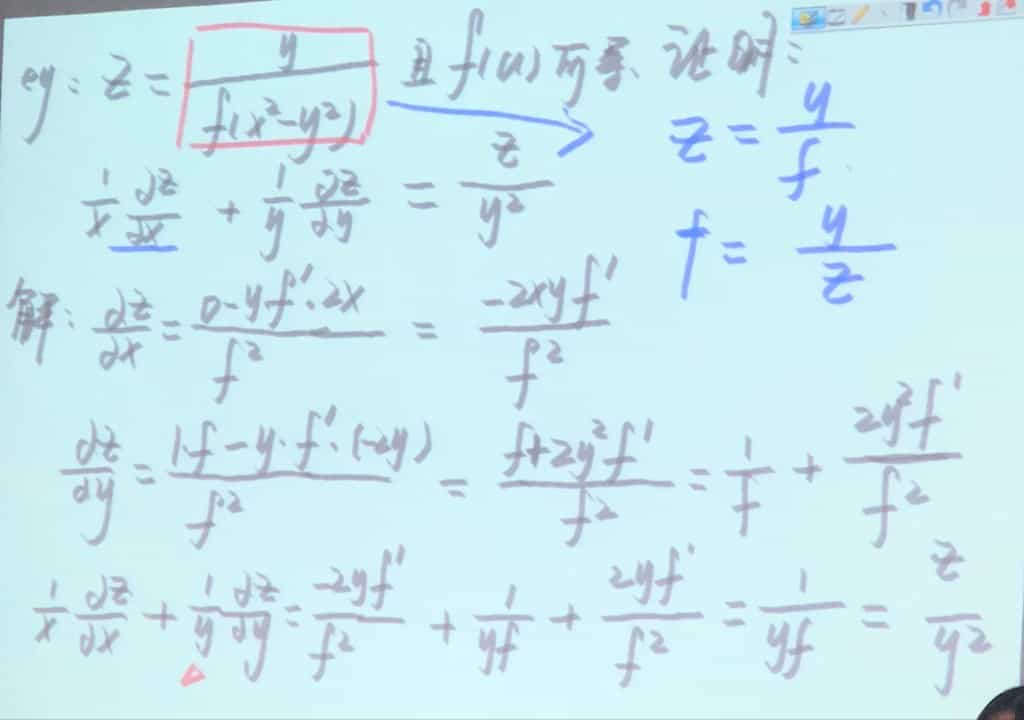 eg: z = y / f(x²-y²) 且 f(u) 可导. 证明:
1/x ∂z/∂x + 1/y ∂z/∂y = z/y²
z = y/f
f = y/z
解: ∂z/∂x = (0-yf'·2x)/f² = -2xyf'/f²
∂z/∂y = (1·f-y·f'·(-2y))/f² = (f+2y²f')/f² = 1/f + 2y²f'/f²
1/x ∂z/∂x + 1/y ∂z/∂y = -2yf'/f² + 1/(yf) + 2yf'/f² = 1/(yf) = z/y²